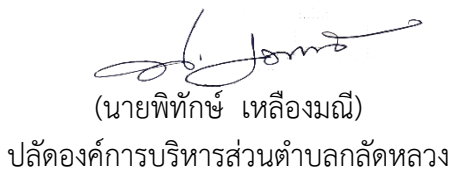 (นายพิทักษ์ เหลืองมณี)
ปลัดองค์การบริหารส่วนตำบลกลัดหลวง